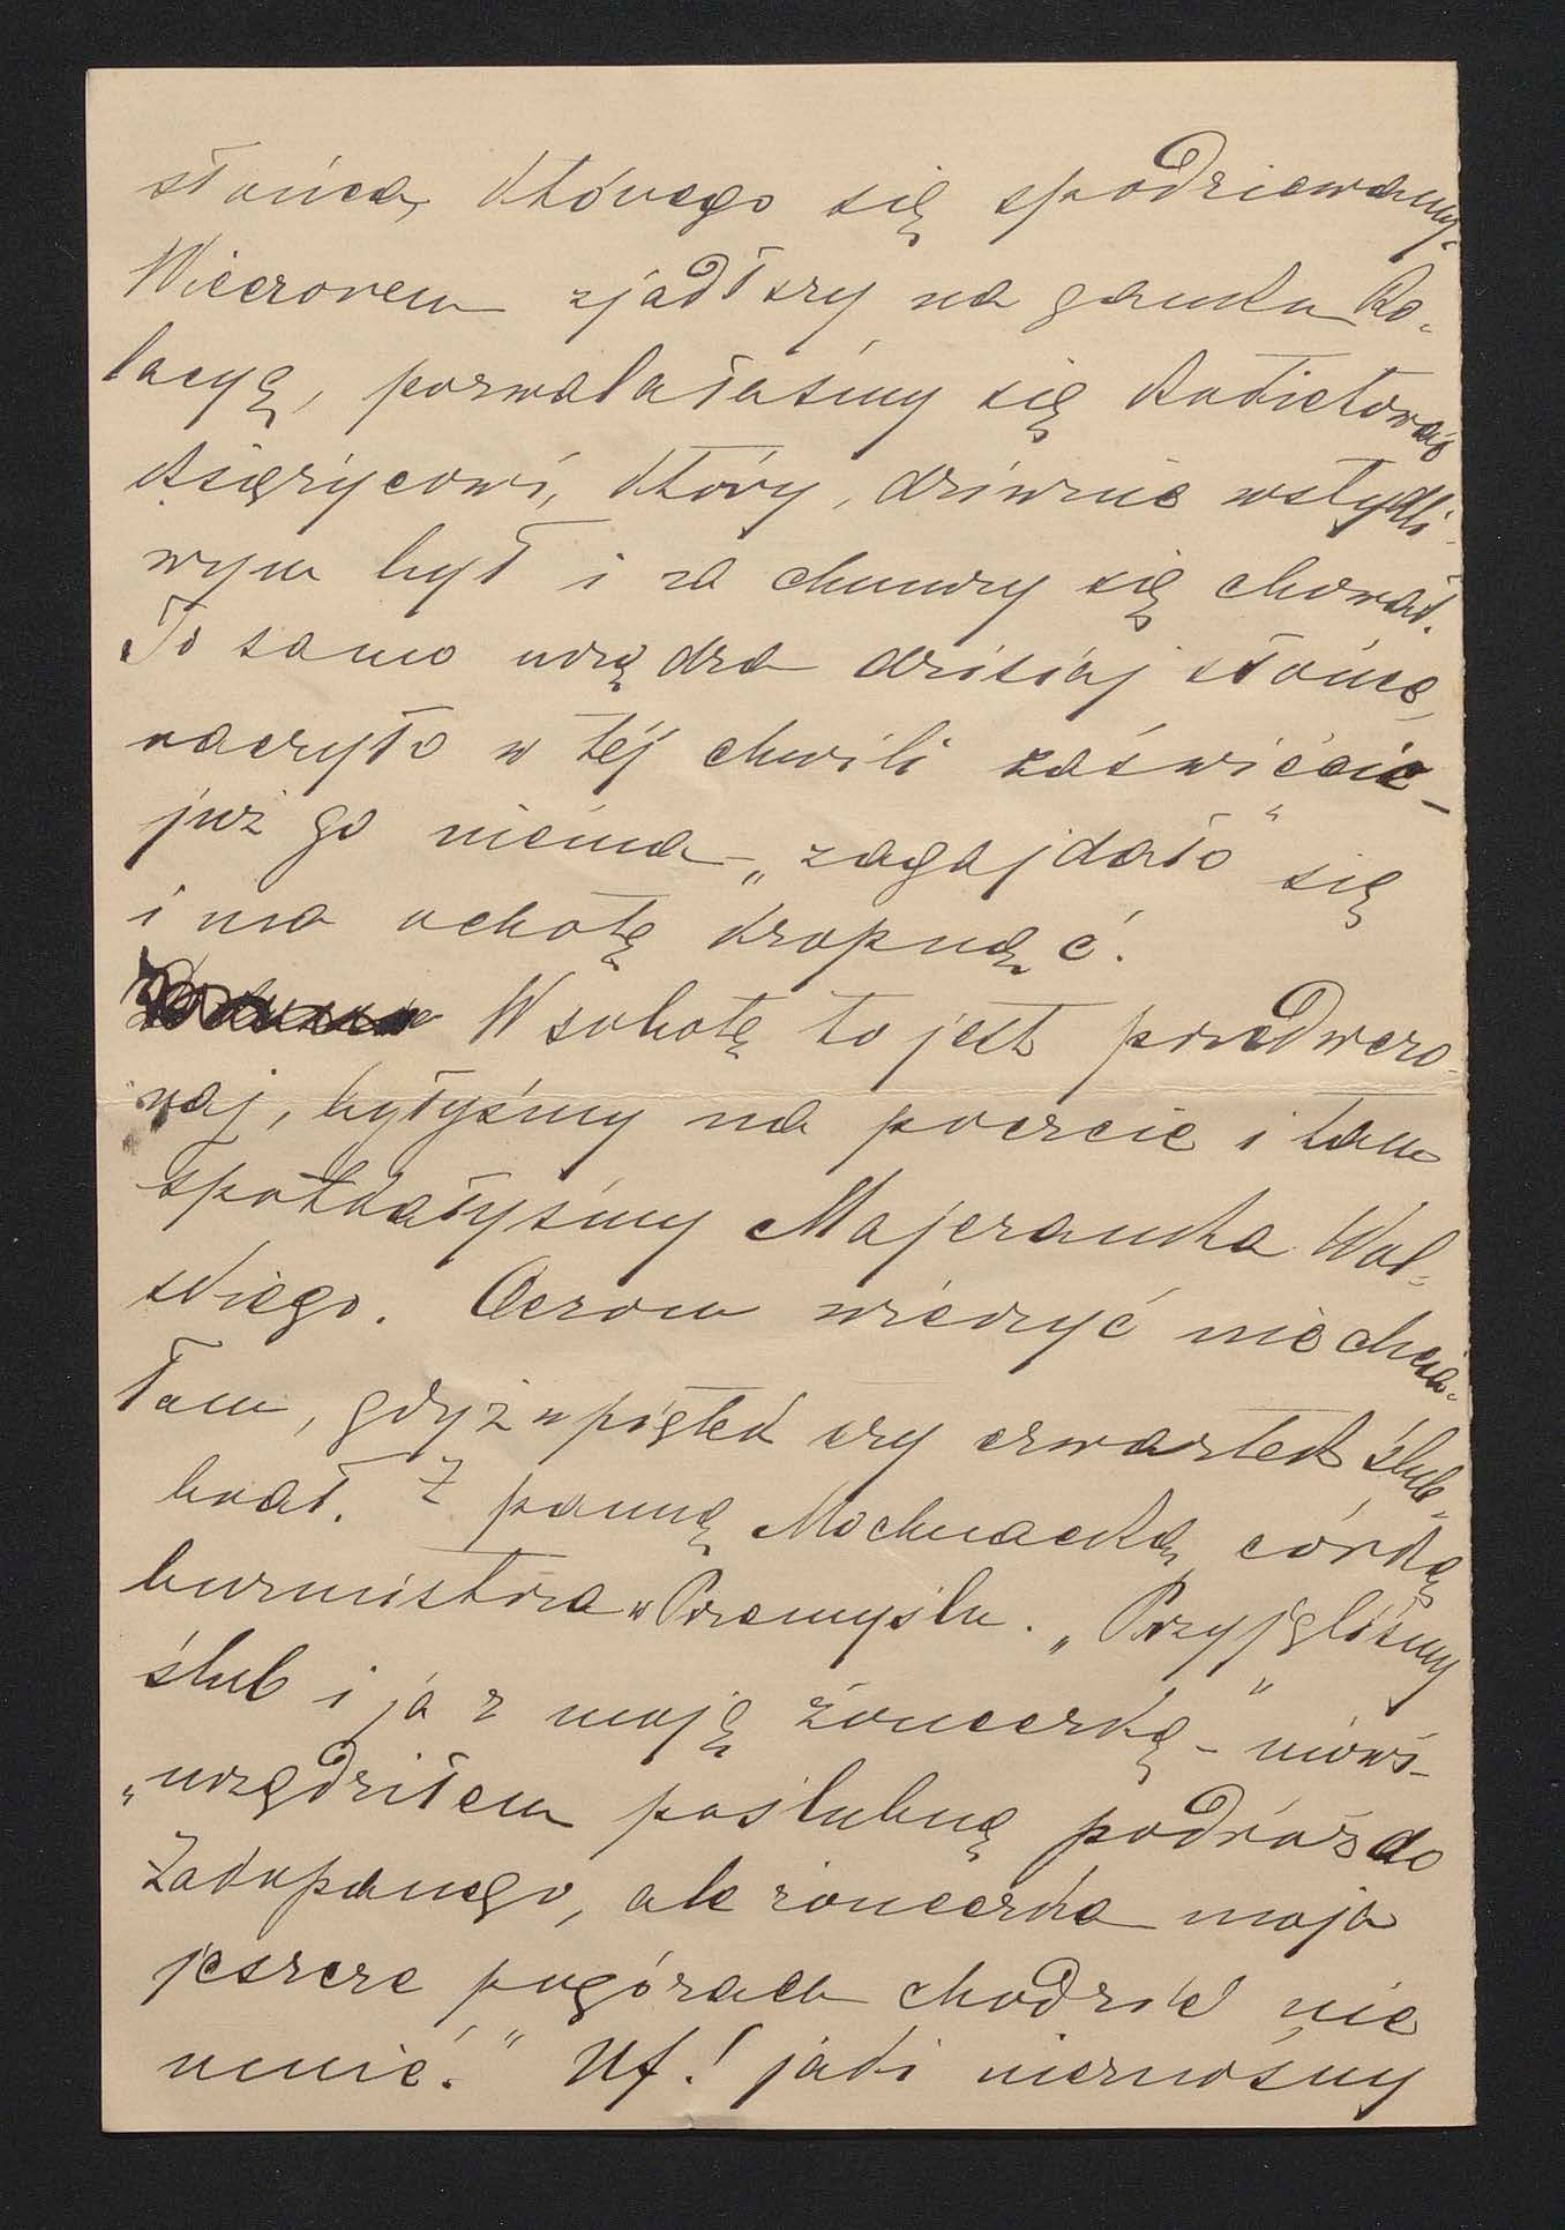 słońca, którego się spodziewamy.
Wieczorem zjadłszy na ganku ko-
lacyę, pozwalałaśmy się kokietować
księżycowi, który, dziwnie wstydli-
wym był i za chmury się chował.
To samo urządza dzisiaj słońce,
raczyło w téj chwili zaświécić –
już go niéma – „zagajdało" się
i ma ochotę kropnąć.
W sobotę to jest przedwczo-
raj, byłyśmy na poczcie i tam
spotkałyśmy Majeranka Wol-
skiego. Oczom wierzyć nie chcia-
łam, gdyż w piątek czy czwartek ślub
brał. Z panną Mochnacką, córką
burmistrza w Przemyślu. „Przyjęliśmy
ślub i ja z moją żoneczką" – mówi –
„urządziłem poślubną podróż do
Zakopanego, ale żoneczka moja
jeszcze po górach chodzić nie
umié." Uf! jaki nieznośny